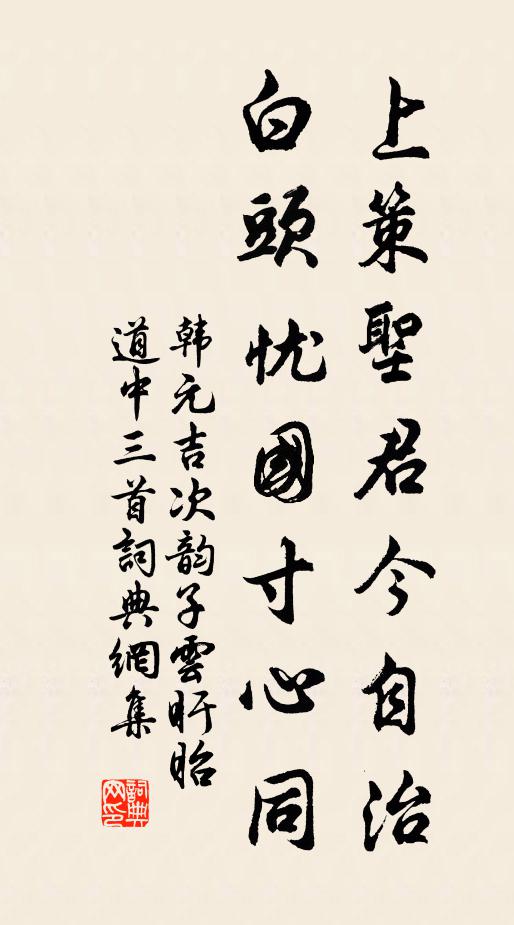 上策聖君今自治
白頭忧國寸心同
韩元吉次韵子雲盱眙
道中三首詞典網集
詞典网印